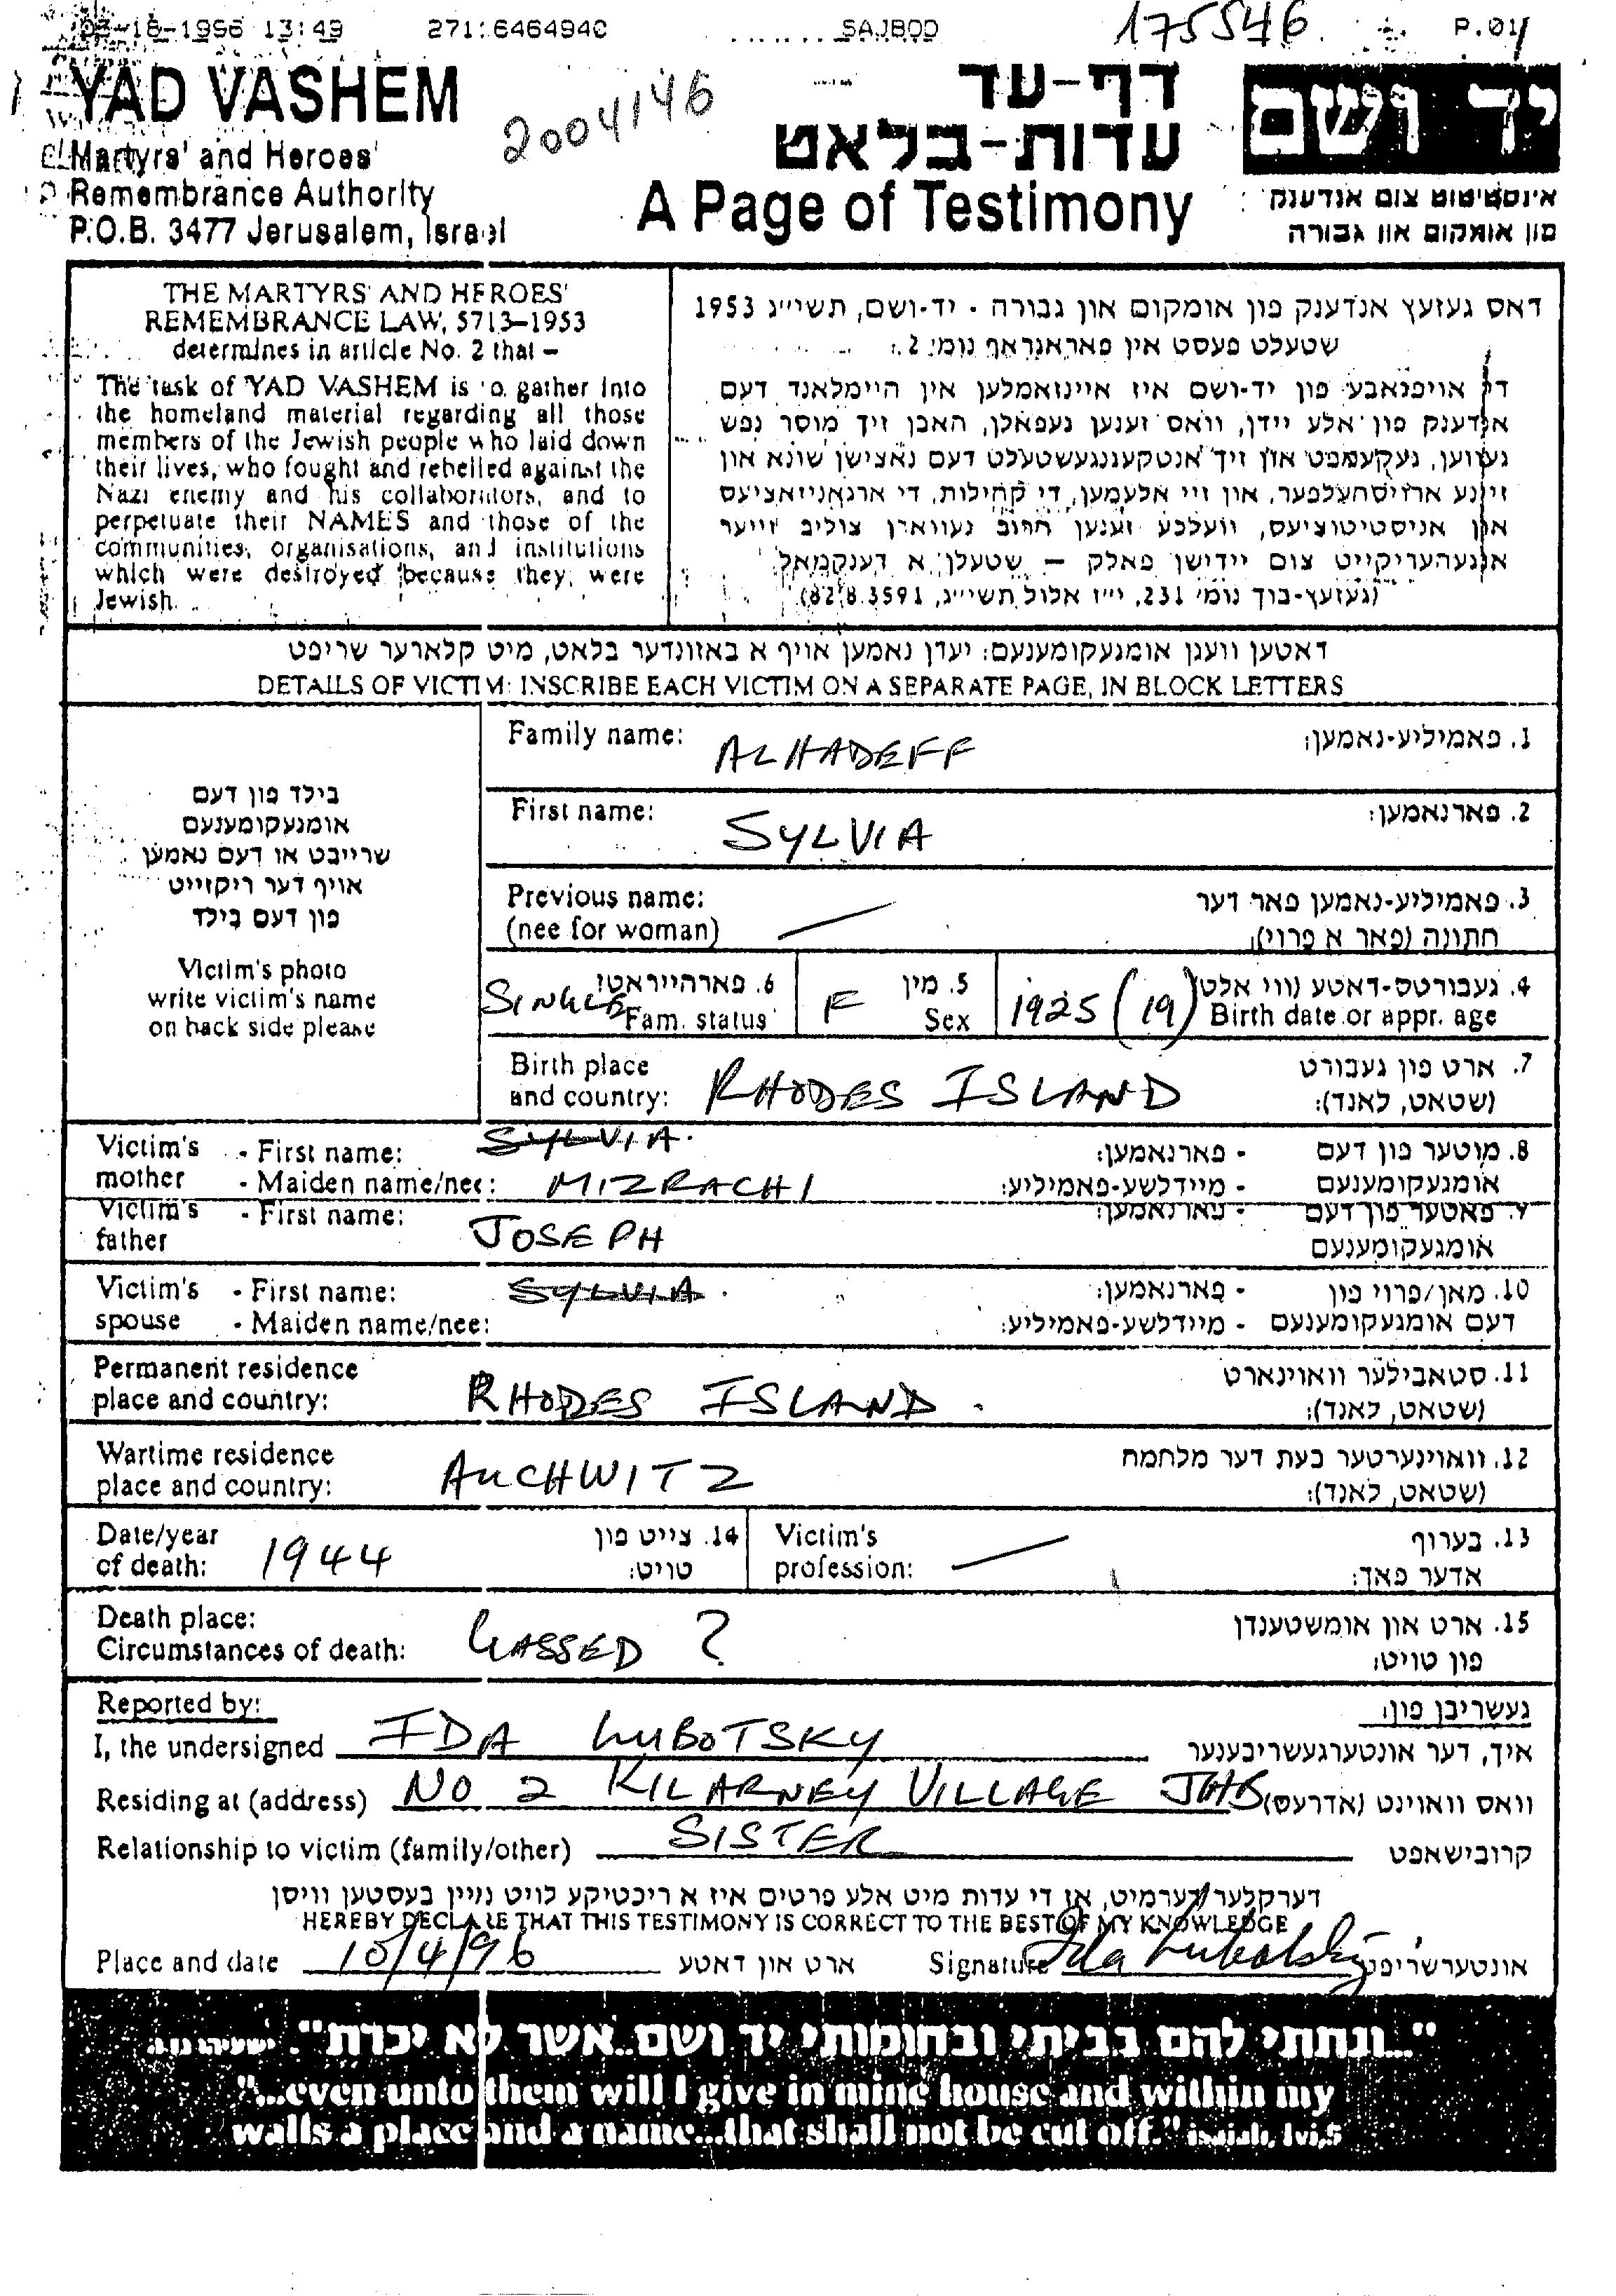 03-18-1996 13:49 271 6464940 SAJBOD P.01
175546
YAD VASHEM
2004146
דף-עד
יד ושם
Martyrs' and Heroes'
עדות-בלאט
Remembrance Authority
A Page of Testimony
אינסטיטוט צום אנדענק
P.O.B. 3477 Jerusalem, Israel
פון אומקום און גבורה
THE MARTYRS' AND HEROES'
REMEMBRANCE LAW, 5713–1953
determines in article No. 2 that –
The task of YAD VASHEM is to gather into
the homeland material regarding all those
members of the Jewish people who laid down
their lives, who fought and rebelled against the
Nazi enemy and his collaborators, and to
perpetuate their NAMES and those of the
communities, organisations, and institutions
which were destroyed because they were
Jewish.
דאס געזעץ אנדענק פון אומקום און גבורה - יד-ושם, תשי״ג 1953
שטעלט פעסט אין פאראגראף נומ׳ 2:
די אויפגאבע פון יד-ושם איז איינזאמלען אין היימלאנד דעם
אנדענק פון אלע יידן, וואס זענען געפאלן, האבן זיך מוסר נפש
געווען, געקעמפט און זיך אנטקעגנגעשטעלט דעם נאצישן שונא און
זיינע ארויסהעלפער, און זיי אלעמען, די קהילות, די ארגאניזאציעס
און אניסטיטוציעס, וועלכע זענען חרוב געווארן צוליב זייער
אנגעהעריקייט צום יידישן פאלק – שטעלן א דענקמאל.
(געזעץ-בוך נומ׳ 231, י״ז אלול תשי״ג, 82.8.3591)
דאטען וועגן אומגעקומענעם: יעדן נאמען אויף א באזונדער בלאט, מיט קלארער שריפט
DETAILS OF VICTIM: INSCRIBE EACH VICTIM ON A SEPARATE PAGE, IN BLOCK LETTERS
בילד פון דעם
אומגעקומענעם
שרייבט או דעם נאמען
אויף דער ריקזייט
פון דעם בילד
Victim's photo
write victim's name
on back side please
Family name: ALHADEFF 1. פאמיליע-נאמען:
First name: SYLVIA 2. פארנאמען:
Previous name: 3. פאמיליע-נאמען פאר דער
(nee for woman) חתונה (פאר א פרוי):
SINGLE 6. פארהייראט? F 5. מין 1925 (19) 4. געבורטס-דאטע (ווי אלט)
Fam. status Sex Birth date or appr. age
Birth place 7. ארט פון געבורט
and country: RHODES ISLAND (שטאט, לאנד):
Victim's - First name: SYLVIA. - פארנאמען: 8. מוטער פון דעם
mother - Maiden name/nee: MIZRACHI - מיידלשע-פאמיליע: אומגעקומענעם
Victim's - First name: JOSEPH - פארנאמען: 9. פאטער פון דעם
father אומגעקומענעם
Victim's - First name: SYLVIA. - פארנאמען: 10. מאן/פרוי פון
spouse - Maiden name/nee: - מיידלשע-פאמיליע: דעם אומגעקומענעם
Permanent residence 11. סטאבילער וואוינארט
place and country: RHODES ISLAND. (שטאט, לאנד):
Wartime residence 12. וואוינערטער בעת דער מלחמה
place and country: AUCHWITZ (שטאט, לאנד):
Date/year 14. צייט פון Victim's 13. בערוף
of death: 1944 טויט: profession: אדער פאך:
Death place: 15. ארט און אומשטענדן
Circumstances of death: GASSED ? פון טויט:
Reported by: געשריבן פון:
I, the undersigned IDA LUBOTSKY איך, דער אונטערגעשריבענער
Residing at (address) NO 2 KILARNEY VILLAGE JHB וואס וואוינט (אדרעס)
Relationship to victim (family/other) SISTER קרובישאפט
דערקלער דערמיט, אז די עדות מיט אלע פרטים איז א ריכטיקע לויט מיין בעסטען וויסן
HEREBY DECLARE THAT THIS TESTIMONY IS CORRECT TO THE BEST OF MY KNOWLEDGE
Place and date 10/4/96 ארט און דאטע Signature Ida Lubotsky אונטערשריפט
"...ונתתי להם בביתי ובחומותי יד ושם..אשר לא יכרת". ישעיהו נו,ה
"...even unto them will I give in mine house and within my
walls a place and a name...that shall not be cut off." isaiah, lvi,5